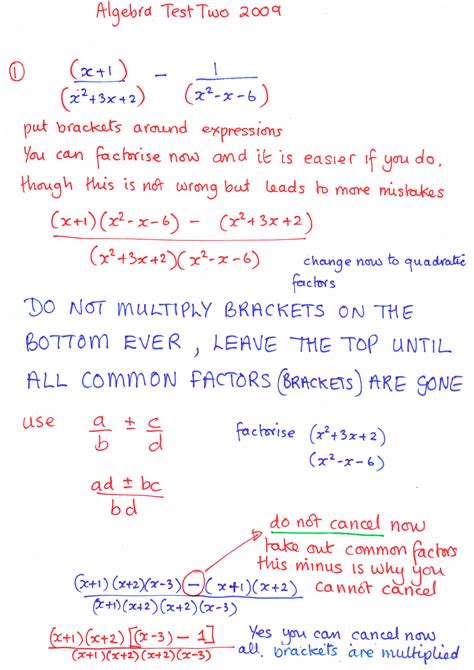 Algebra Test Two 2009
① (x+1)/(x²+3x+2) − 1/(x²-x-6)
put brackets around expressions
You can factorise now and it is easier if you do,
though this is not wrong but leads to more mistakes
(x+1)(x²-x-6) − (x²+3x+2)
(x²+3x+2)(x²-x-6)
change now to quadratic
factors
DO NOT MULTIPLY BRACKETS ON THE
BOTTOM EVER, LEAVE THE TOP UNTIL
ALL COMMON FACTORS (BRACKETS) ARE GONE
use a/b ± c/d
factorise (x²+3x+2)
(x²-x-6)
ad ± bc
bd
do not cancel now
take out common factors
this minus is why you
cannot cancel
(x+1)(x+2)(x-3) − (x+1)(x+2)
(x+1)(x+2)(x+2)(x-3)
(x+1)(x+2)[(x-3) − 1]
(x+1)(x+2)(x+2)(x-3)
Yes you can cancel now
all brackets are multiplied